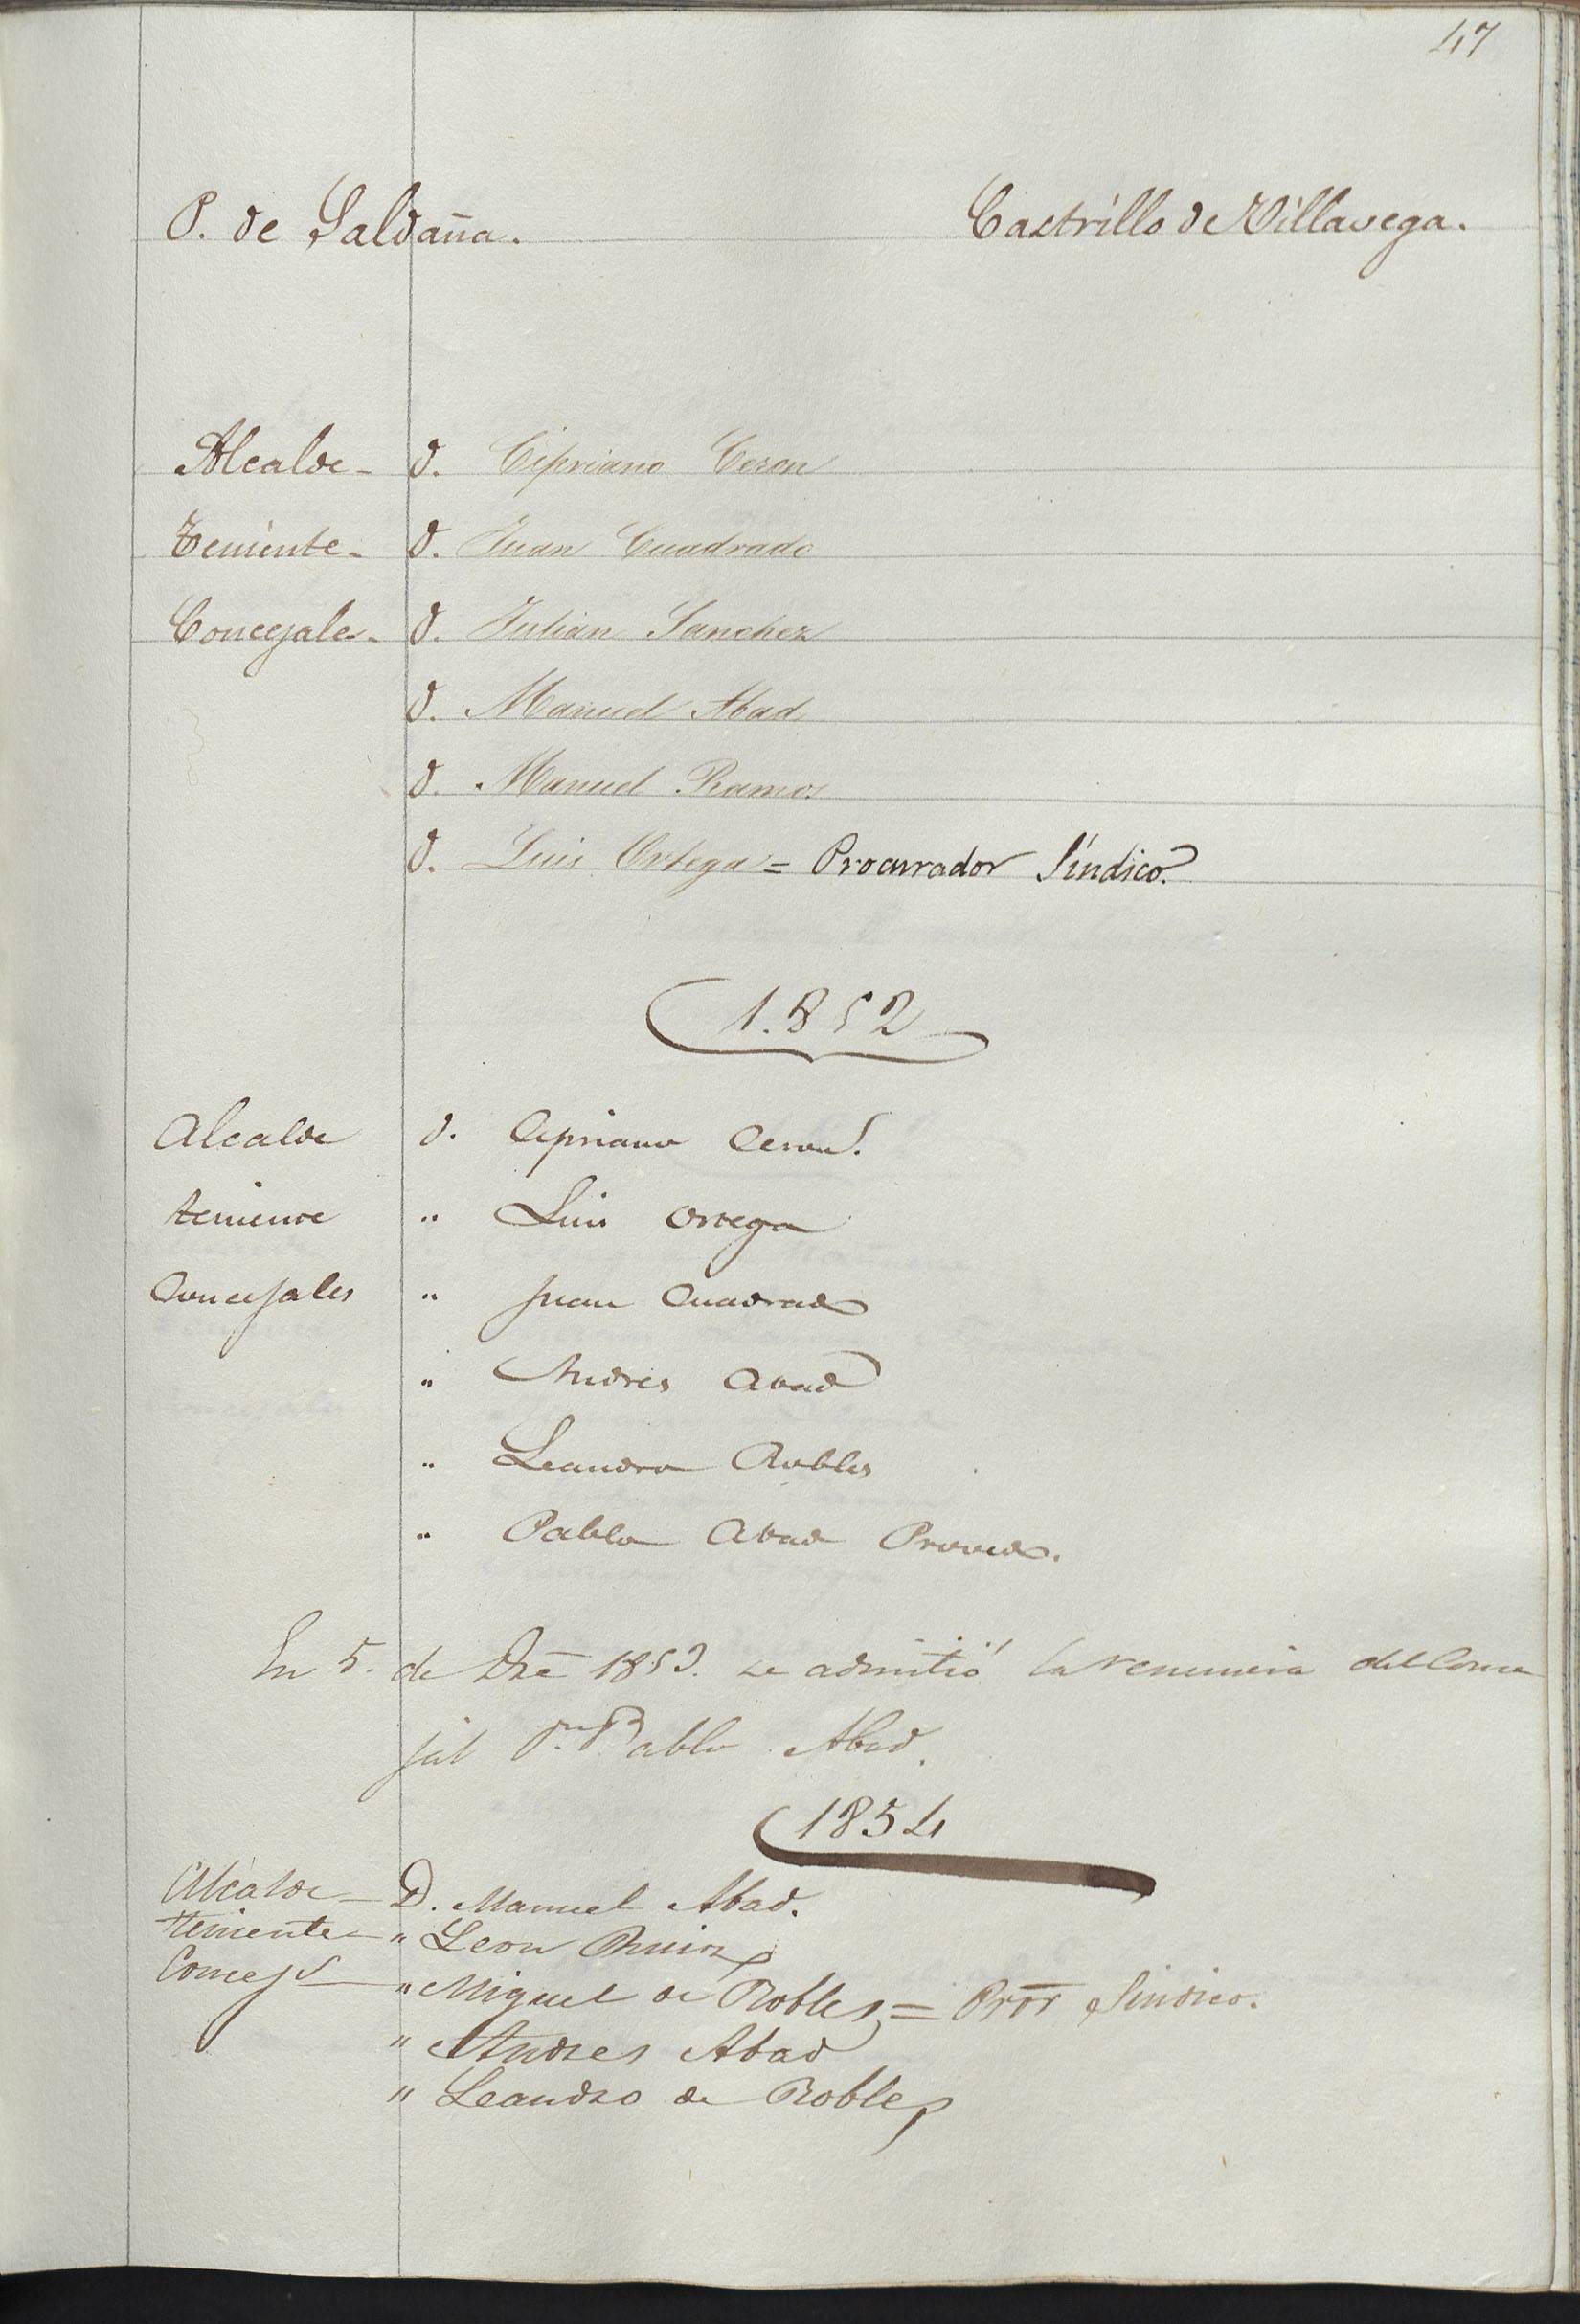 47
P. de Saldaña. Castrillo de Villavega.
Alcalde - D. Cipriano Ceron
Teniente - D. Juan Cuadrado
Concejales - D. Julian Sanchez
D. Manuel Abad
D. Manuel Ramos
D. Luis Ortega = Procurador Síndico.
1.852
Alcalde D. Cipriano Ceron.
teniente " Luis Ortega
Concejales " Juan Cuadrado
" Andres Abad
" Leandro Robles
" Pablo Abad
En 5. de Dre 1853. se admitió la renuncia del Conce
jal Dn. Pablo Abad.
1854
Alcalde - D. Manuel Abad.
teniente - " Leon Ruiz
Concejs - " Miguel de Robles = Pror Sindico.
" Andres Abad
" Leandro de Robles